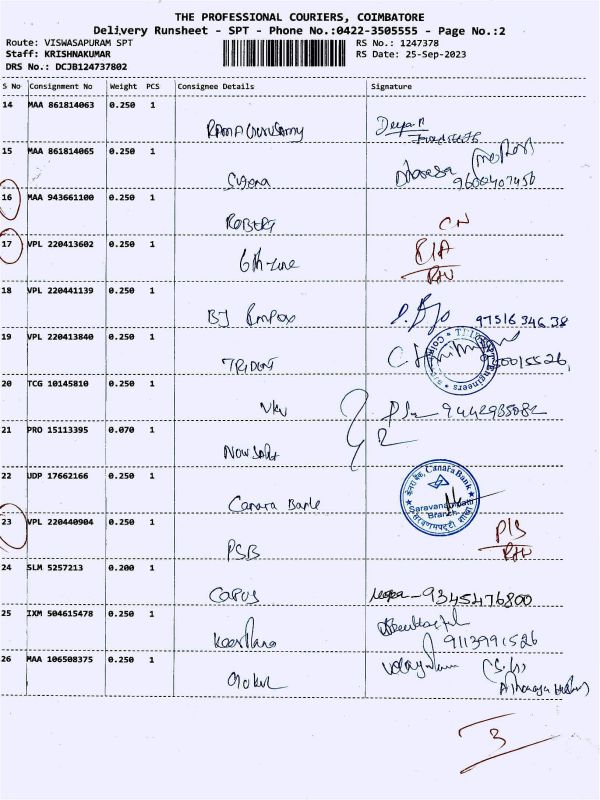 THE PROFESSIONAL COURIERS, COIMBATORE
Delivery Runsheet - SPT - Phone No.:0422-3505555 - Page No.:2
Route: VISWASAPURAM SPT
RS No.: 1247378
Staff: KRISHNAKUMAR
RS Date: 25-Sep-2023
DRS No.: DCJB124737802
S No Consignment No Weight PCS Consignee Details Signature
14 MAA 861814063 0.250 1
Deepa R
15 MAA 861814065 0.250 1
Suguna
9600407450
16 MAA 943661100 0.250 1
ROBERT CN
17 VPL 220413602 0.250 1
6th-Line
18 VPL 220441139 0.250 1
97516 346 38
19 VPL 220413840 0.250 1
TRIDENT
Engineers
20 TCG 10145810 0.250 1
VKV 9442935082
21 PRO 15113395 0.070 1
22 UDP 17662166 0.250 1
Canara Bank
Canara Bank
Saravanampatti
Branch
23 VPL 220440904 0.250 1
PSB
24 SLM 5257213 0.200 1
9345476800
25 IXM 504615478 0.250 1
9113991526
26 MAA 106508375 0.250 1
Gokul
3